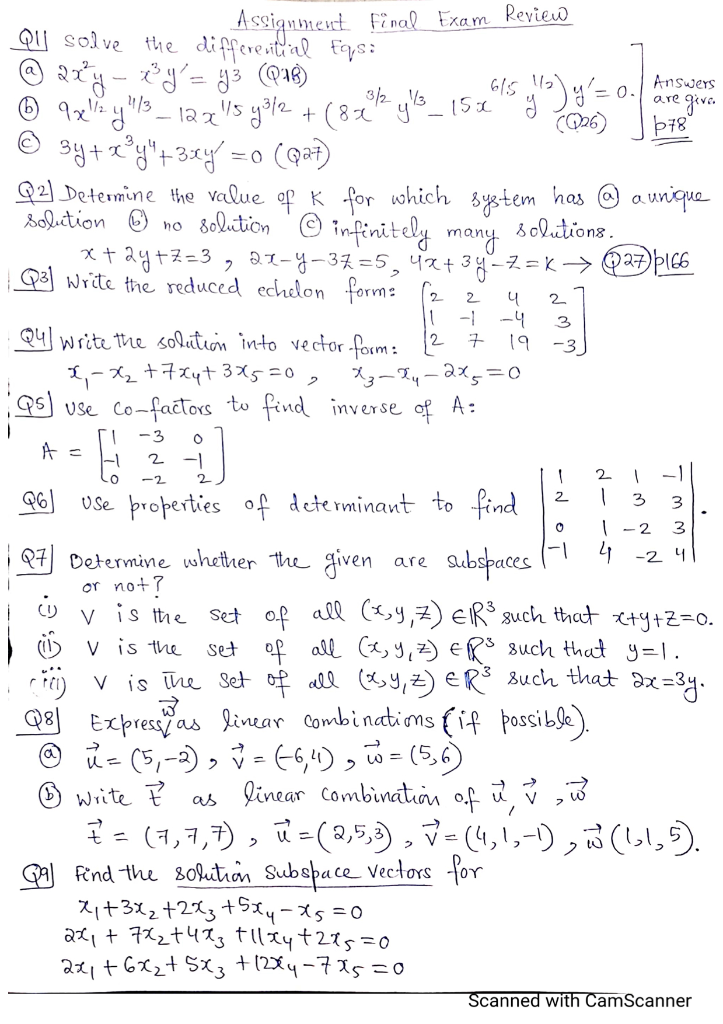 Assignment Final Exam Review
Q1| solve the differential Eqs:
(a) 2x²y - x³y' = y3 (Q18)
(b) 9x^{1/2} y^{4/3} - 12x^{1/5} y^{3/2} + (8x^{3/2} y^{1/3} - 15x^{6/5} y^{1/2}) y' = 0. (Q26)
(c) 3y + x³y⁴ + 3xy' = 0 (Q27)
Answers are give. p78
Q2| Determine the value of K for which system has (a) a unique
solution (b) no solution (c) infinitely many solutions.
x + 2y + z = 3 , 2x - y - 3z = 5, 4x + 3y - z = K → (Q27) p166
Q3| Write the reduced echelon form: [2 2 4 2
1 -1 -4 3
2 7 19 -3]
Q4| Write the solution into vector form:
x₁ - x₂ + 7x₄ + 3x₅ = 0 , x₃ - x₄ - 2x₅ = 0
Q5| Use Co-factors to find inverse of A:
A = [1 -3 0
-1 2 -1
0 -2 2]
Q6| Use properties of determinant to find |1 2 1 -1
2 1 3 3
0 1 -2 3
-1 4 -2 4|.
Q7| Determine whether the given are subspaces
or not?
(i) V is the set of all (x,y,z) ∈ R³ such that x+y+z=0.
(ii) V is the set of all (x,y,z) ∈ R³ such that y=1.
(iii) V is the set of all (x,y,z) ∈ R³ such that 2x=3y.
Q8| Express w⃗ as linear combinations (if possible).
(a) u⃗ = (5,-2) , v⃗ = (-6,4) , w⃗ = (5,6)
(b) Write t⃗ as linear combination of u⃗, v⃗, w⃗
t⃗ = (7,7,7) , u⃗ = (2,5,3) , v⃗ = (4,1,-1) , w⃗ (1,1,5).
Q9| Find the solution Subspace vectors for
x₁ + 3x₂ + 2x₃ + 5x₄ - x₅ = 0
2x₁ + 7x₂ + 4x₃ + 11x₄ + 2x₅ = 0
2x₁ + 6x₂ + 5x₃ + 12x₄ - 7x₅ = 0
Scanned with CamScanner